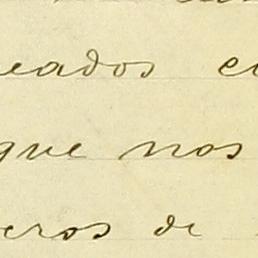 eados
que nos
eros de